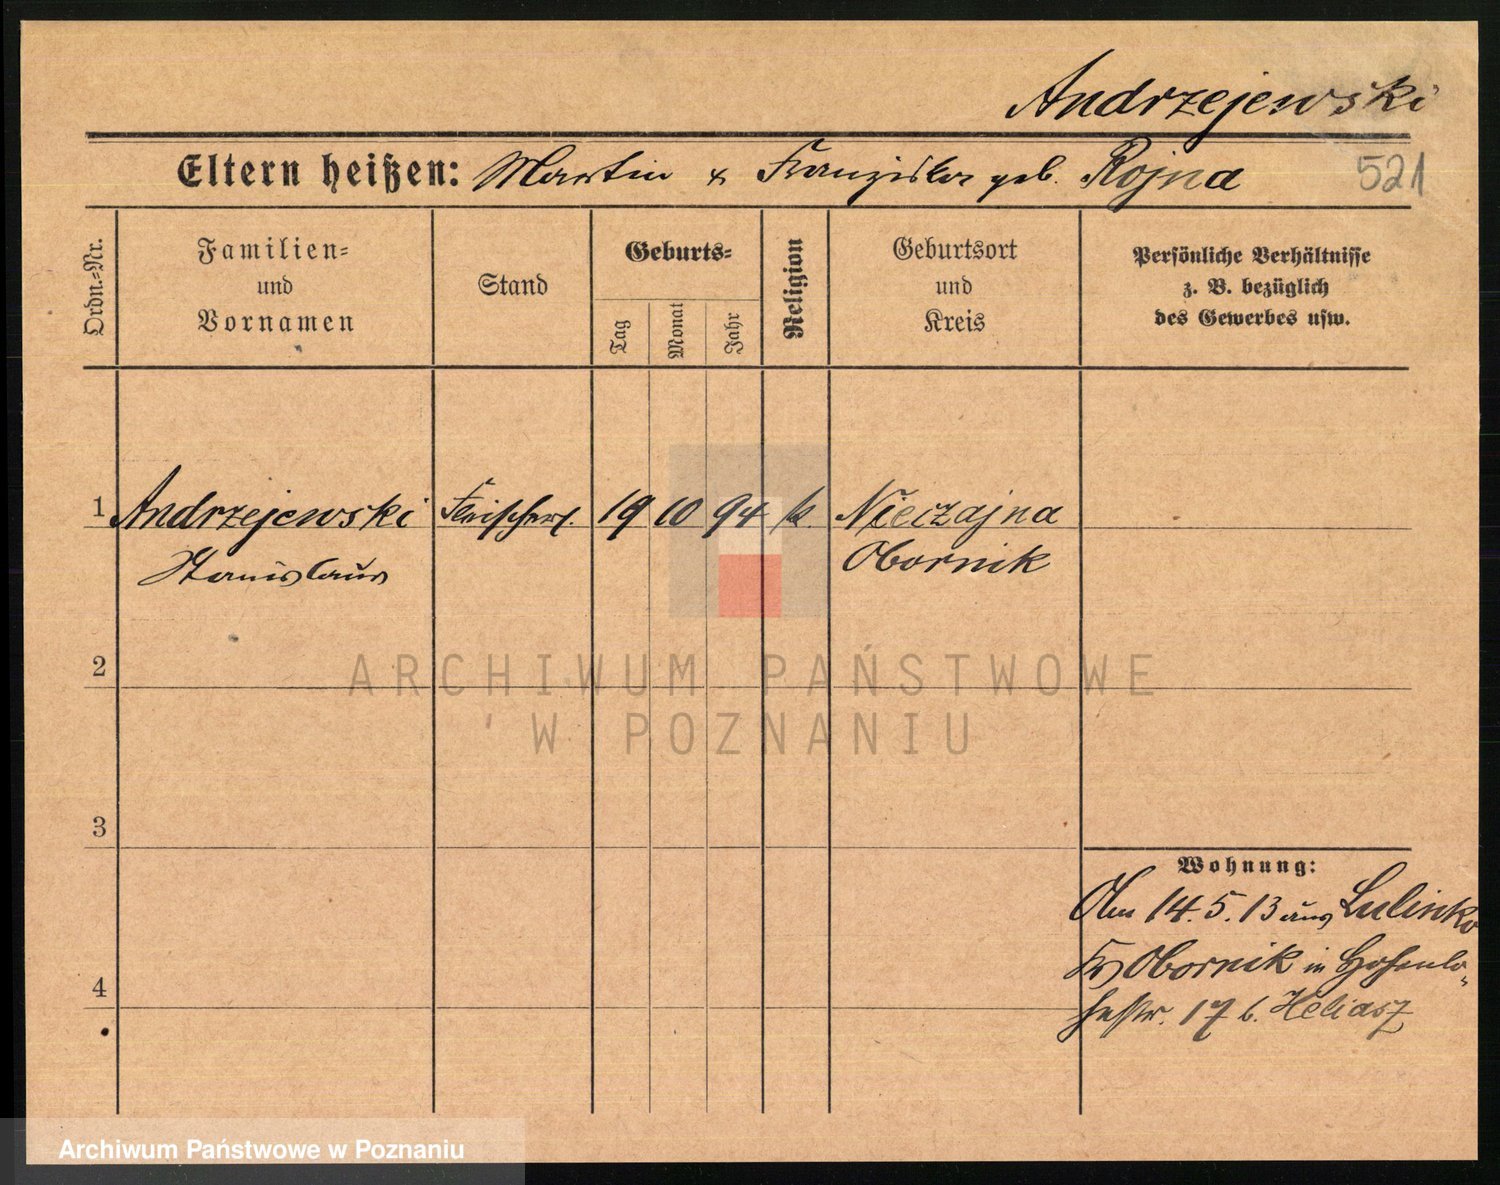 Andrzejewski
Eltern heißen: Martin & Franziska geb. Rojna 521
Ordn.-Nr.
Familien-
und
Vornamen
Stand
Geburts-
Tag
Monat
Jahr
Religion
Geburtsort
und
Kreis
Persönliche Verhältnisse
z. B. bezüglich
des Gewerbes usw.
1 Andrzejewski Fleischerl. 19 10 94 k Nieczajna
Stanislaus Obornik
2
ARCHIWUM PAŃSTWOWE
W POZNANIU
3
Wohnung:
Am 14.5.13 aus Lulinko
Kr Obornik in Hohenlo-
hestr. 17 b. Heliasz
4
Archiwum Państwowe w Poznaniu